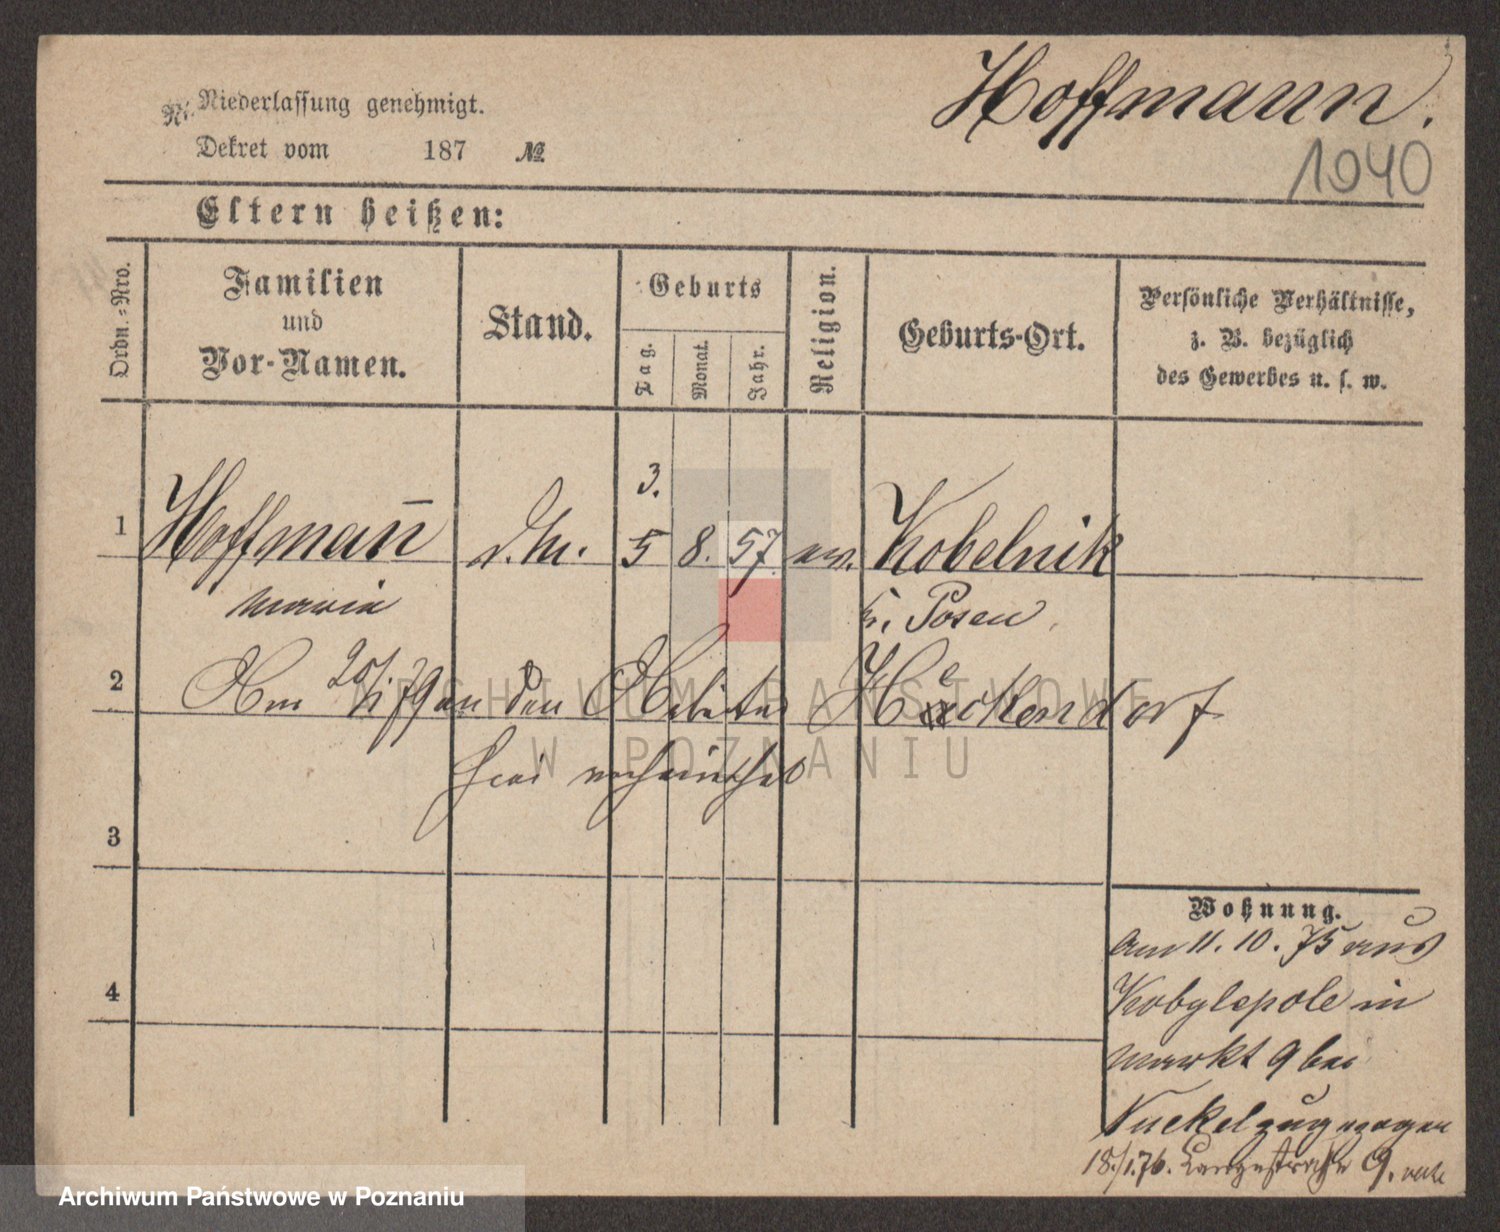 Hoffmann.
Nr. Niederlassung genehmigt.
Dekret vom 187 №
1040
Eltern heißen:
Ordn.-Nro.
Familien
und
Vor-Namen.
Stand.
Geburts
Tag.
Monat.
Jahr.
Religion.
Geburts-Ort.
Persönliche Verhältnisse,
z. B. bezüglich
des Gewerbes u. s. w.
3.
1 Hoffman̄ d.M. 5 8. 57. ev. Kobelnik
Maria Kr. Posen
2 Am 20/1 79 an den Arbeiter Haeckendorf
hier verheirathet
3
4
Wohnung.
Am 11. 10. 75 aus
Kobylepole in
Markt 9 bei
Nuckel zugezogen
18./1.76. Langestraße 9.
ARCHIWUM PAŃSTWOWE
W POZNANIU
Archiwum Państwowe w Poznaniu